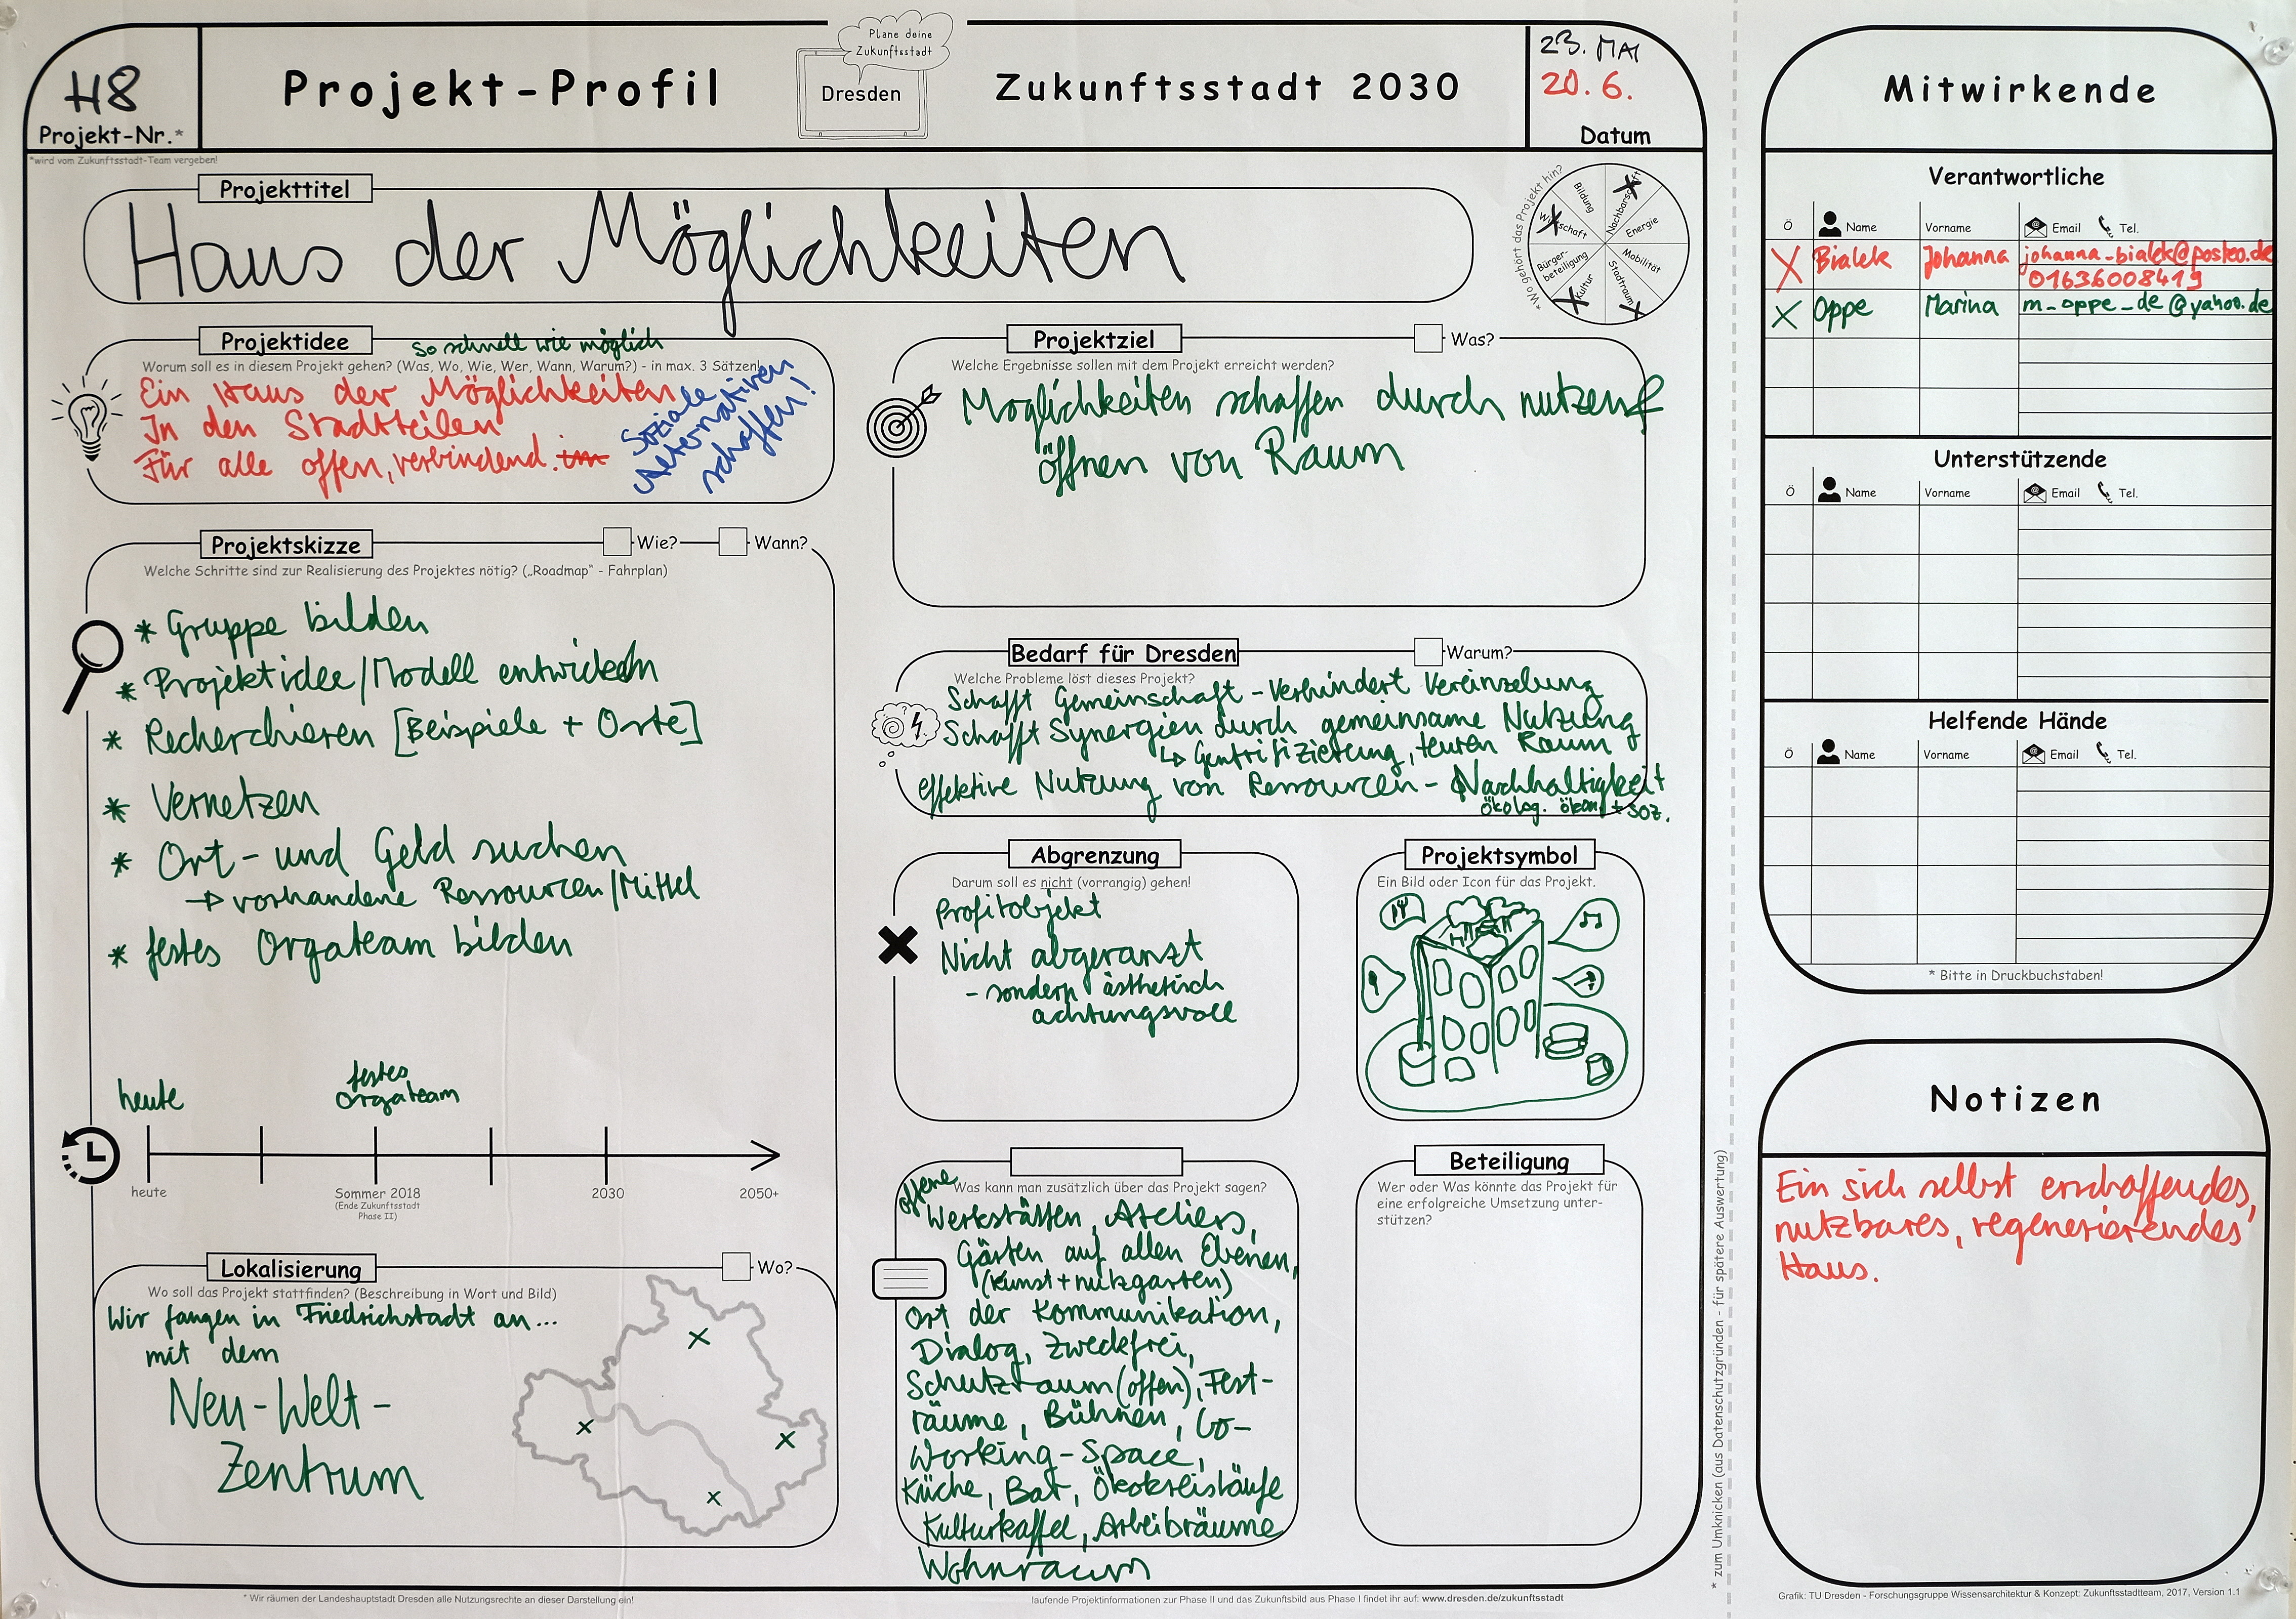 H8
Projekt-Nr.*
*wird vom Zukunftsstadt-Team vergeben!
Projekt-Profil
Plane deine
Zukunftsstadt
Dresden
Zukunftsstadt 2030
23. MAI
20.6.
Datum
Projekttitel
Haus der Möglichkeiten
*Wo gehört das Projekt hin?
Bildung
Nachbarschaft
Energie
Mobilität
Stadtraum
Kultur
Bürger-
beteiligung
Wirtschaft
Projektidee
so schnell wie möglich
Worum soll es in diesem Projekt gehen? (Was, Wo, Wie, Wer, Wann, Warum?) - in max. 3 Sätzen!
Ein Haus der Möglichkeiten
In den Stadtteilen
Für alle offen, verbindend. im
Soziale
Alternativen
schaffen!
Projektskizze
Wie?
Wann?
Welche Schritte sind zur Realisierung des Projektes nötig? („Roadmap" - Fahrplan)
* Gruppe bilden
* Projektidee/Modell entwickeln
* Recherchieren [Beispiele + Orte]
* Vernetzen
* Ort- und Geld suchen
→ vorhandene Ressourcen/Mittel
* festes Orgateam bilden
heute
festes
Orgateam
heute
Sommer 2018
(Ende Zukunftsstadt
Phase II)
2030
2050+
Lokalisierung
Wo?
Wo soll das Projekt stattfinden? (Beschreibung in Wort und Bild)
Wir fangen in Friedrichstadt an...
mit dem
Neu-Welt-
Zentrum
Projektziel
Was?
Welche Ergebnisse sollen mit dem Projekt erreicht werden?
Möglichkeiten schaffen durch nutzen &
öffnen von Raum
Bedarf für Dresden
Warum?
Welche Probleme löst dieses Projekt?
Schafft Gemeinschaft - verhindert Vereinzelung
Schafft Synergien durch gemeinsame Nutzung
↳ Gentrifizierung, teuren Raum
effektive Nutzung von Ressourcen - Nachhaltigkeit
ökolog. ökon. + soz.
Abgrenzung
Darum soll es nicht (vorrangig) gehen!
Profitobjekt
Nicht abgeranzt
- sondern ästhetisch
achtungsvoll
Projektsymbol
Ein Bild oder Icon für das Projekt.
Was kann man zusätzlich über das Projekt sagen?
offene
Werkstätten, Ateliers,
Gärten auf allen Ebenen,
(Kunst + nutzgarten)
Ort der Kommunikation,
Dialog, zweckfrei,
Schutzraum (offen), Fest-
räume, Bühnen, Co-
Working-Space,
Küche, Bar, Ökokreisläufe
Kulturkaffel, Arbeibräume
Wohnraum
Beteiligung
Wer oder Was könnte das Projekt für
eine erfolgreiche Umsetzung unter-
stützen?
* Wir räumen der Landeshauptstadt Dresden alle Nutzungsrechte an dieser Darstellung ein!
laufende Projektinformationen zur Phase II und das Zukunftsbild aus Phase I findet ihr auf: www.dresden.de/zukunftsstadt
* zum Umknicken (aus Datenschutzgründen - für spätere Auswertung)
Mitwirkende
Verantwortliche
Ö Name Vorname Email Tel.
X Bialek Johanna johanna-bialek@posteo.de
01636008419
X Oppe Marina m_oppe_de@yahoo.de
Unterstützende
Ö Name Vorname Email Tel.
Helfende Hände
Ö Name Vorname Email Tel.
* Bitte in Druckbuchstaben!
Notizen
Ein sich selbst erschaffendes,
nutzbares, regenerierendes
Haus.
Grafik: TU Dresden - Forschungsgruppe Wissensarchitektur & Konzept: Zukunftsstadtteam, 2017, Version 1.1